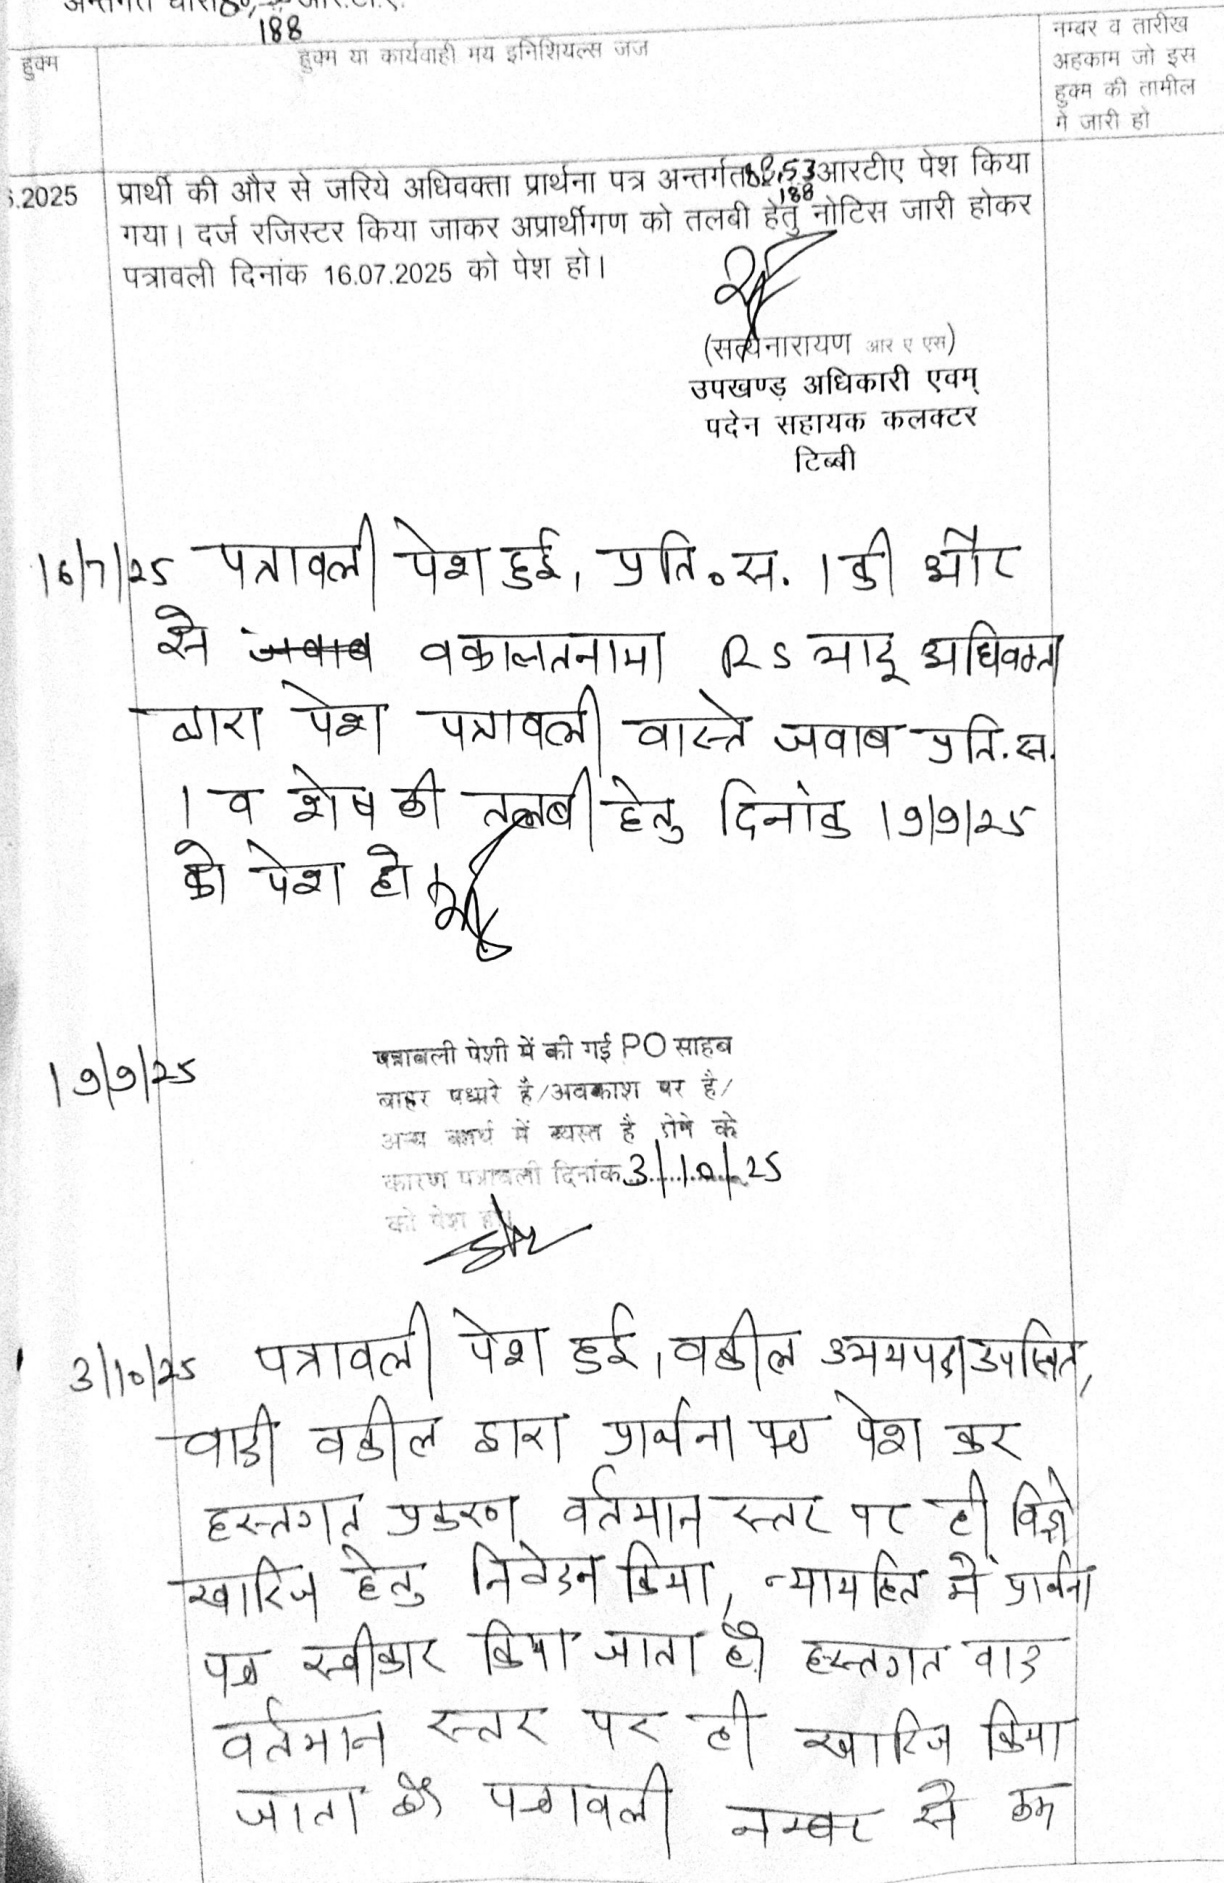 188
हुक्म
हुक्म या कार्यवाही मय इनिशियल्स जज
नम्बर व तारीख
अहकाम जो इस
हुक्म की तामील
में जारी हो
.2025 प्रार्थी की और से जरिये अधिवक्ता प्रार्थना पत्र अन्तर्गत 53 आरटीए पेश किया
188
गया। दर्ज रजिस्टर किया जाकर अप्रार्थीगण को तलबी हेतु नोटिस जारी होकर
पत्रावली दिनांक 16.07.2025 को पेश हो।
(सत्यनारायण आर ए एस)
उपखण्ड अधिकारी एवम्
पदेन सहायक कलक्टर
टिब्बी
16/7/25 पत्रावली पेश हुई, प्रति.स. 1 की और
से जवाब वकालतनामा RS अधिवक्ता
द्वारा पेश पत्रावली वास्ते जवाब प्रति.स.
1 व शेष की तलबी हेतु दिनांक 19/9/25
को पेश हो।
19/9/25
पत्रावली पेशी में की गई PO साहब
बाहर पधारे है/अवकाश पर है/
अन्य कार्य में व्यस्त है होने के
कारण पत्रावली दिनांक 3/10/25
को पेश हो।
3/10/25 पत्रावली पेश हुई, वकील उभयपक्ष उपस्थित,
वादी वकील द्वारा प्रार्थना पत्र पेश कर
हस्तगत प्रकरण वर्तमान स्तर पर ही
खारिज हेतु निवेदन किया, न्यायहित में प्रार्थना
पत्र स्वीकार किया जाता है। हस्तगत वाद
वर्तमान स्तर पर ही खारिज किया
जाता है। पत्रावली नम्बर से कम